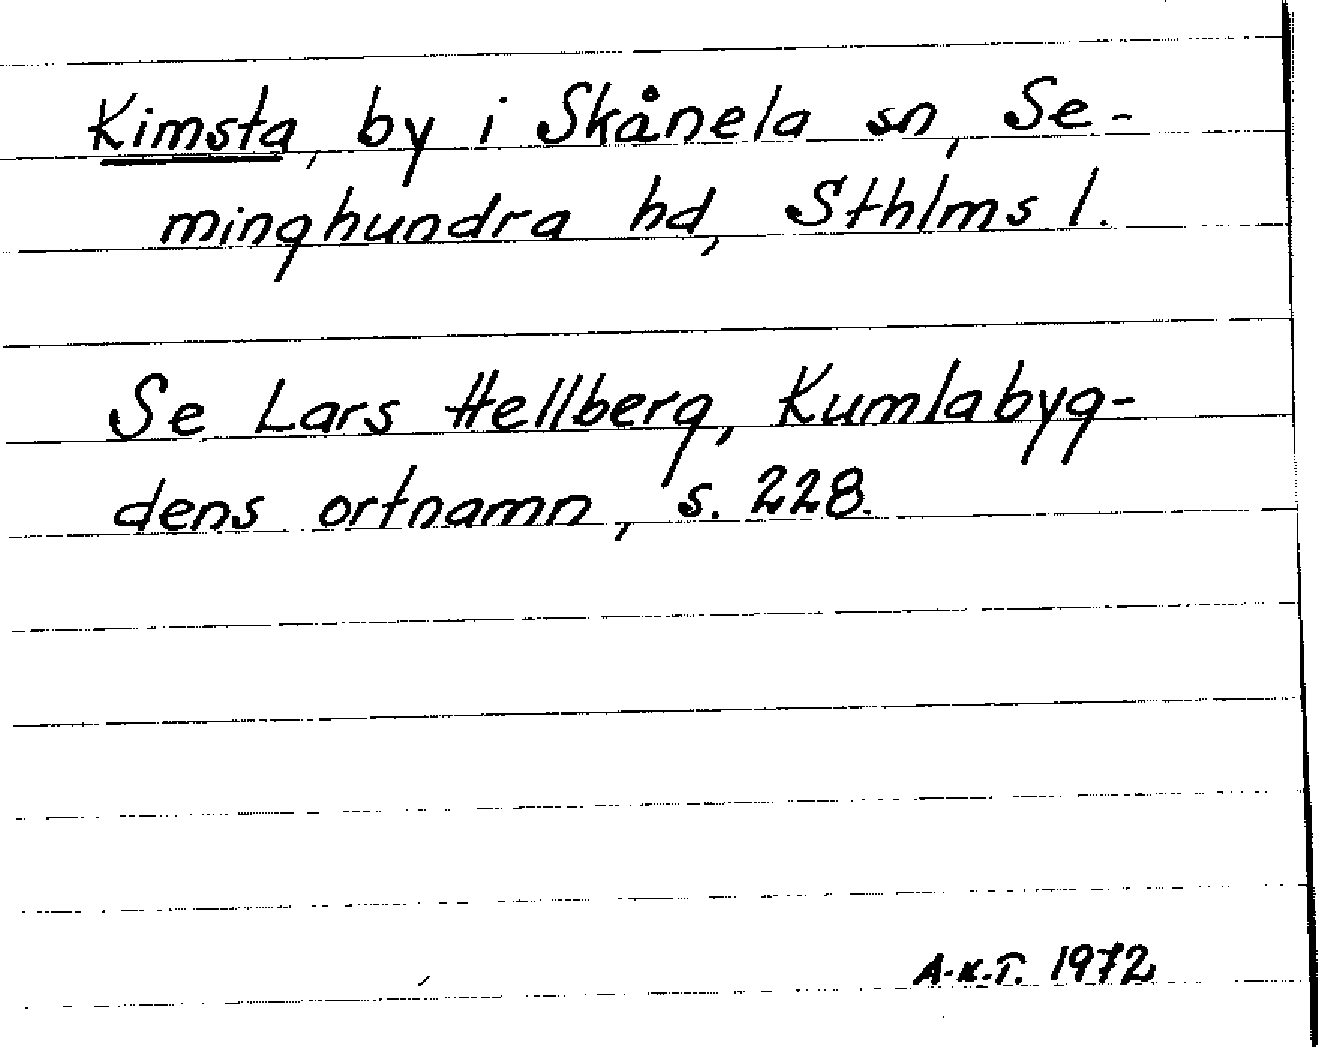 Kimsta, by i Skånela sn, Se-
minghundra hd, Sthlms l.
Se Lars Hellberg, Kumlabyg-
dens ortnamn, s. 228.
A-K.T. 1972